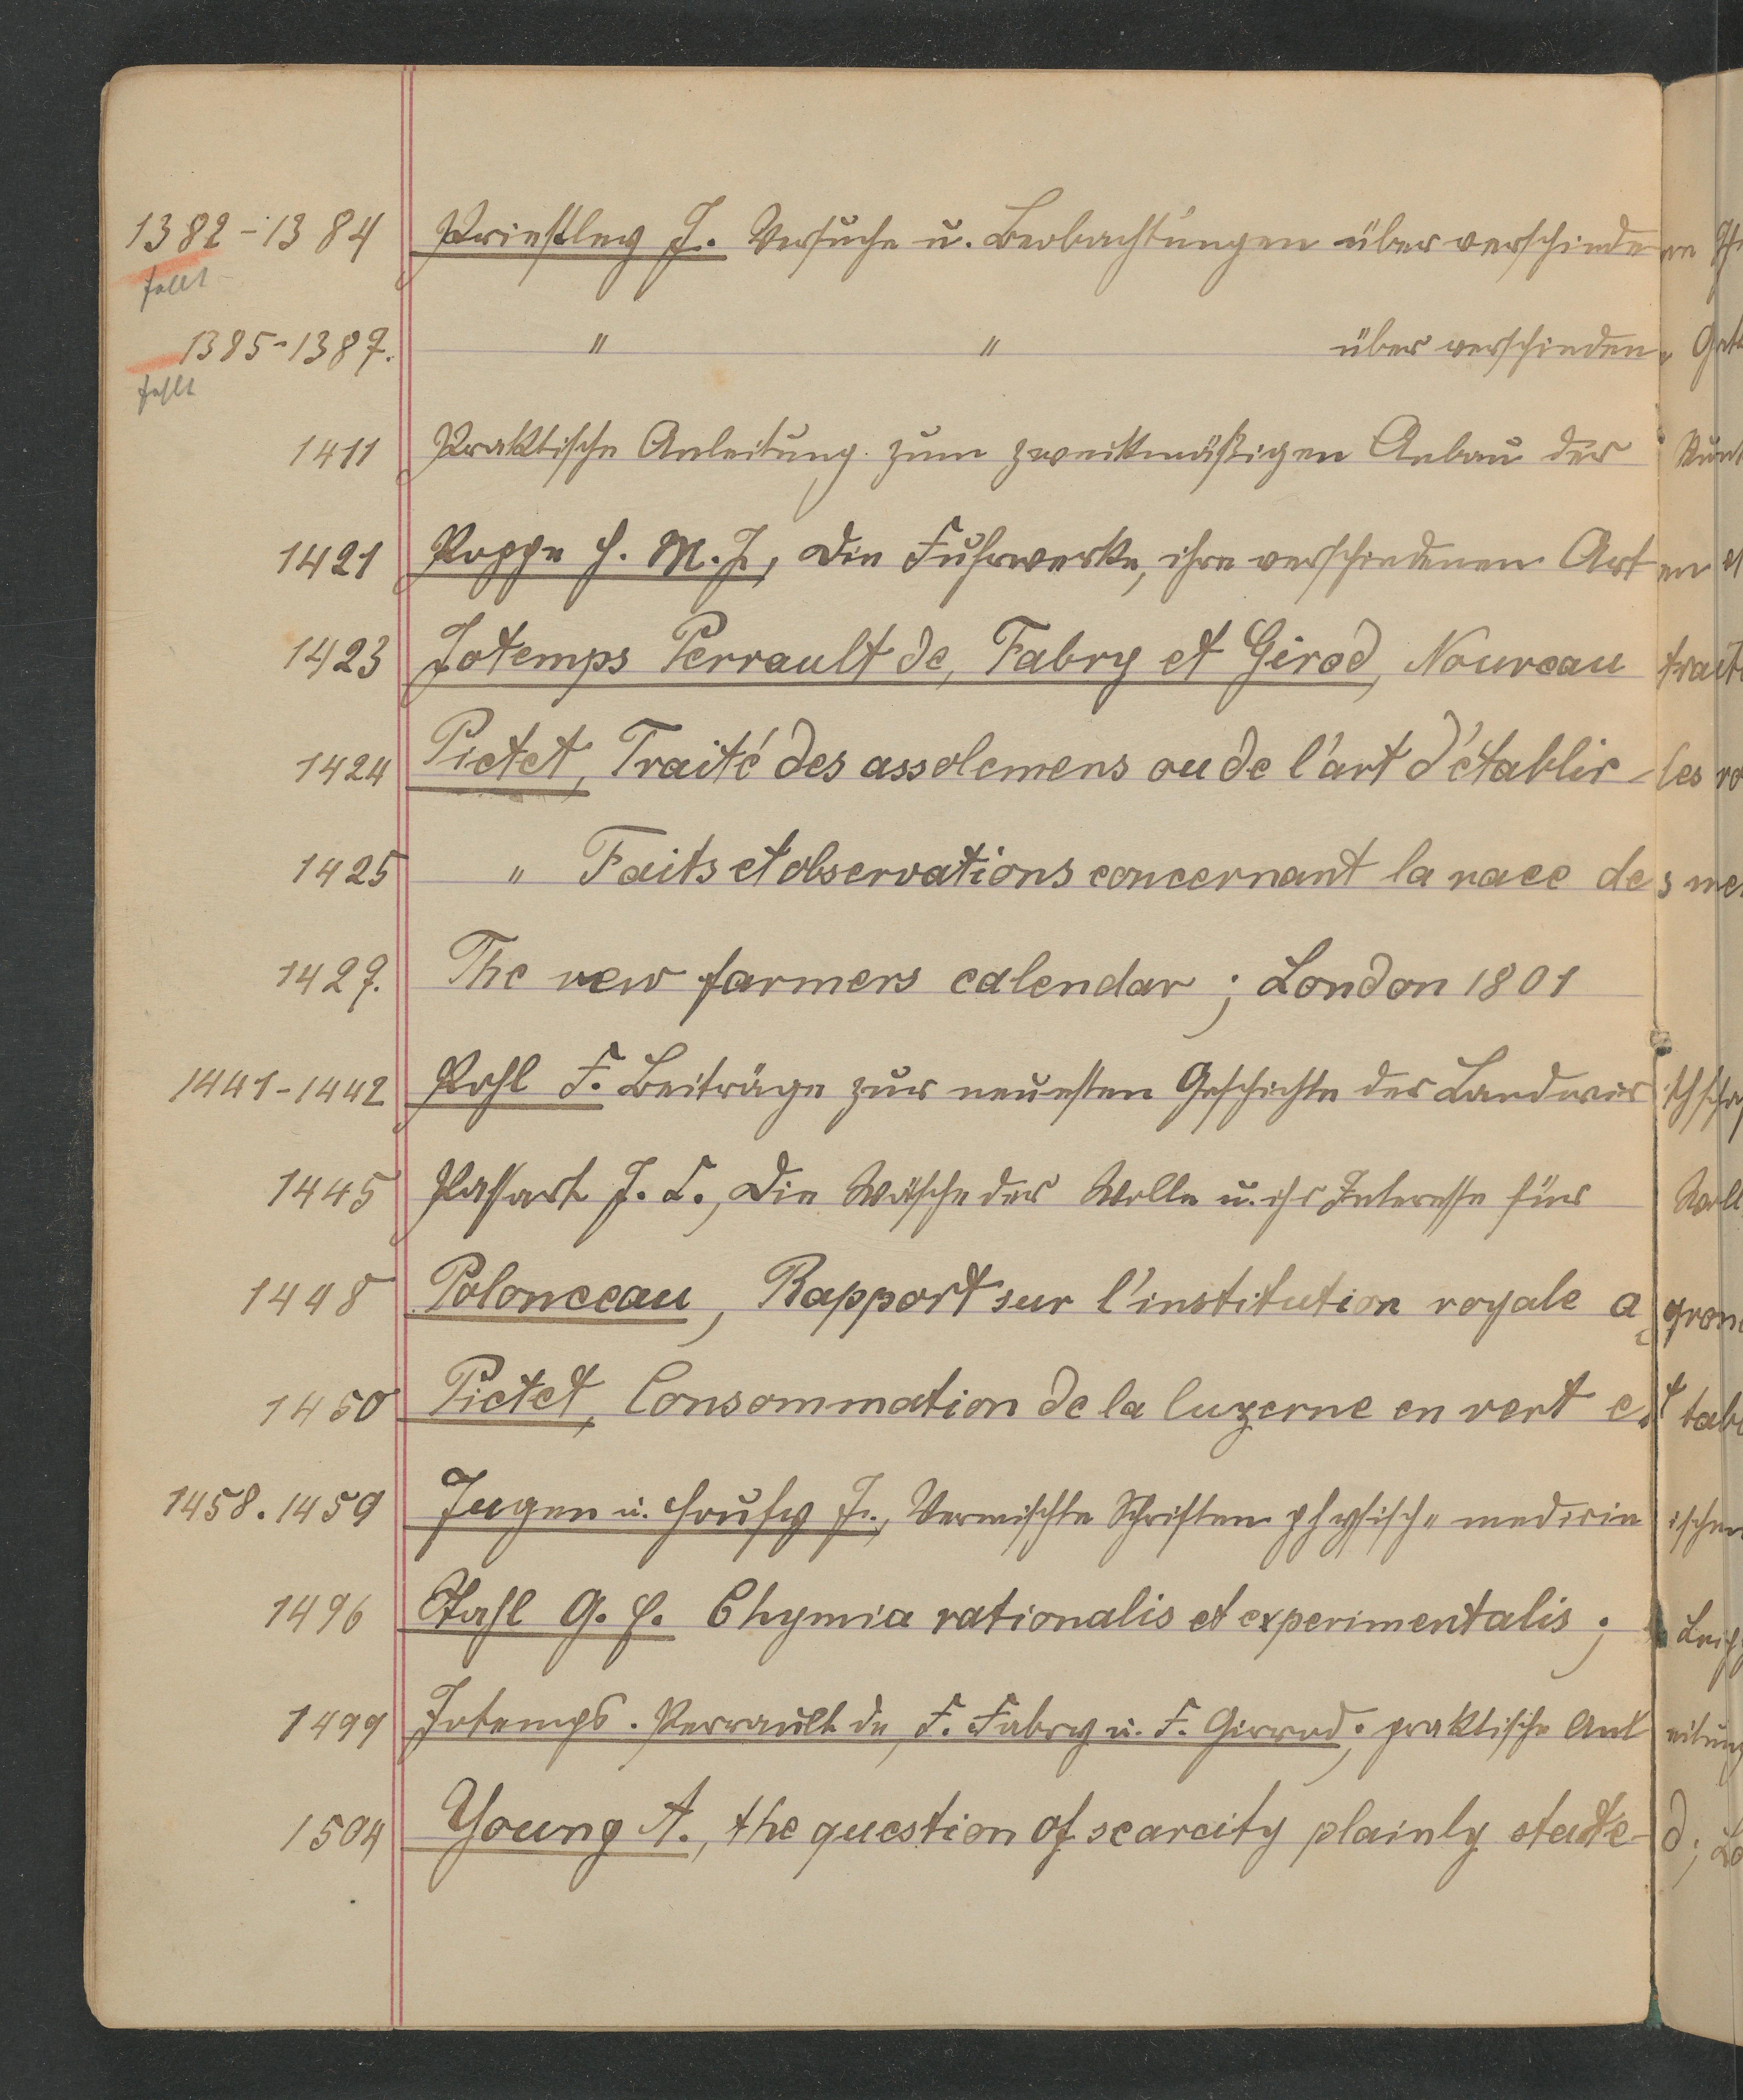 1382-1384 Priestley J. Versuche u. Beobachtungen über verschiedene
fehlt
1385-1387. " " über verschieden.
fehlt
1411 Praktische Anleitung zum zweckmäßigen Anbau der Runk
1421 Poppe H. M. J., Die Fuhrwerke, ihre verschiedenen Arten
1423 Jotemps Perrault de, Fabry et Girod, Nouveau trait
1424 Pictet, Traité des assolemens ou de l'art d'établir les ro
1425 " Faits et observations concernant la race des me
1427. The new farmers calendar; London 1801
1441-1442 Pohl F. Beiträge zur neuesten Geschichte der Landwirthschaf
1445 Passart J. L., Die Wäsche der Wolle u. ihr Interesse für Woll
1448 Polonceau, Rapport sur l'institution royale agron
1450 Pictet, Consommation de la luzerne en vert et tab
1458. 1459 Ingen u. Housy J., Vermischte Schriften physisch-medicinischen
1496 Stahl G. H. Chymia rationalis et experimentalis; Leipz
1499 Jotemps. Perrault de, F. Fabry u. F. Girrod; praktische Anleitung
1504 Young A., the question of scarcity plainly stated; Lo